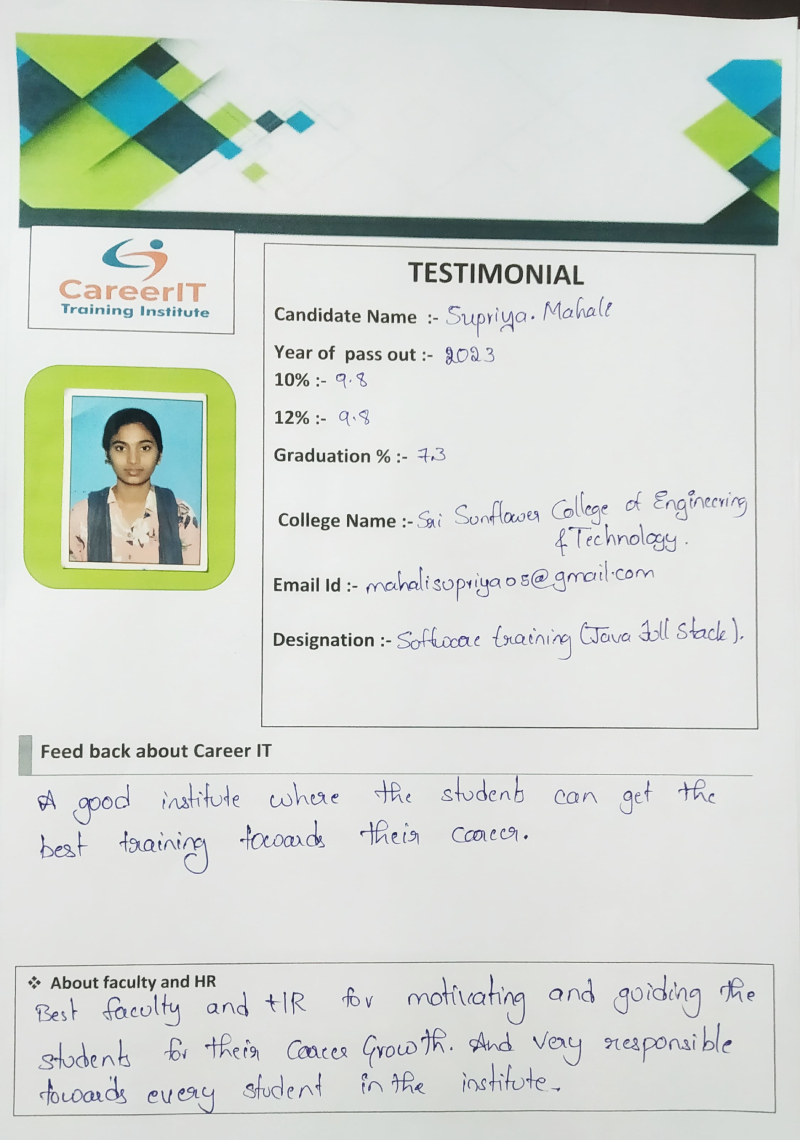 CareerIT
Training Institute
TESTIMONIAL
Candidate Name :- Supriya. Mahali
Year of pass out :- 2023
10% :- 9.8
12% :- 9.8
Graduation % :- 7.3
College Name :- Sai Sunflower College of Engineering
& Technology.
Email Id :- mahalisupriya08@gmail.com
Designation :- Software training (Java Full Stack).
Feed back about Career IT
A good institute where the students can get the
best training towards their career.
❖ About faculty and HR
Best faculty and HR for motivating and guiding the
students for their Career Growth. And very responsible
towards every student in the institute.